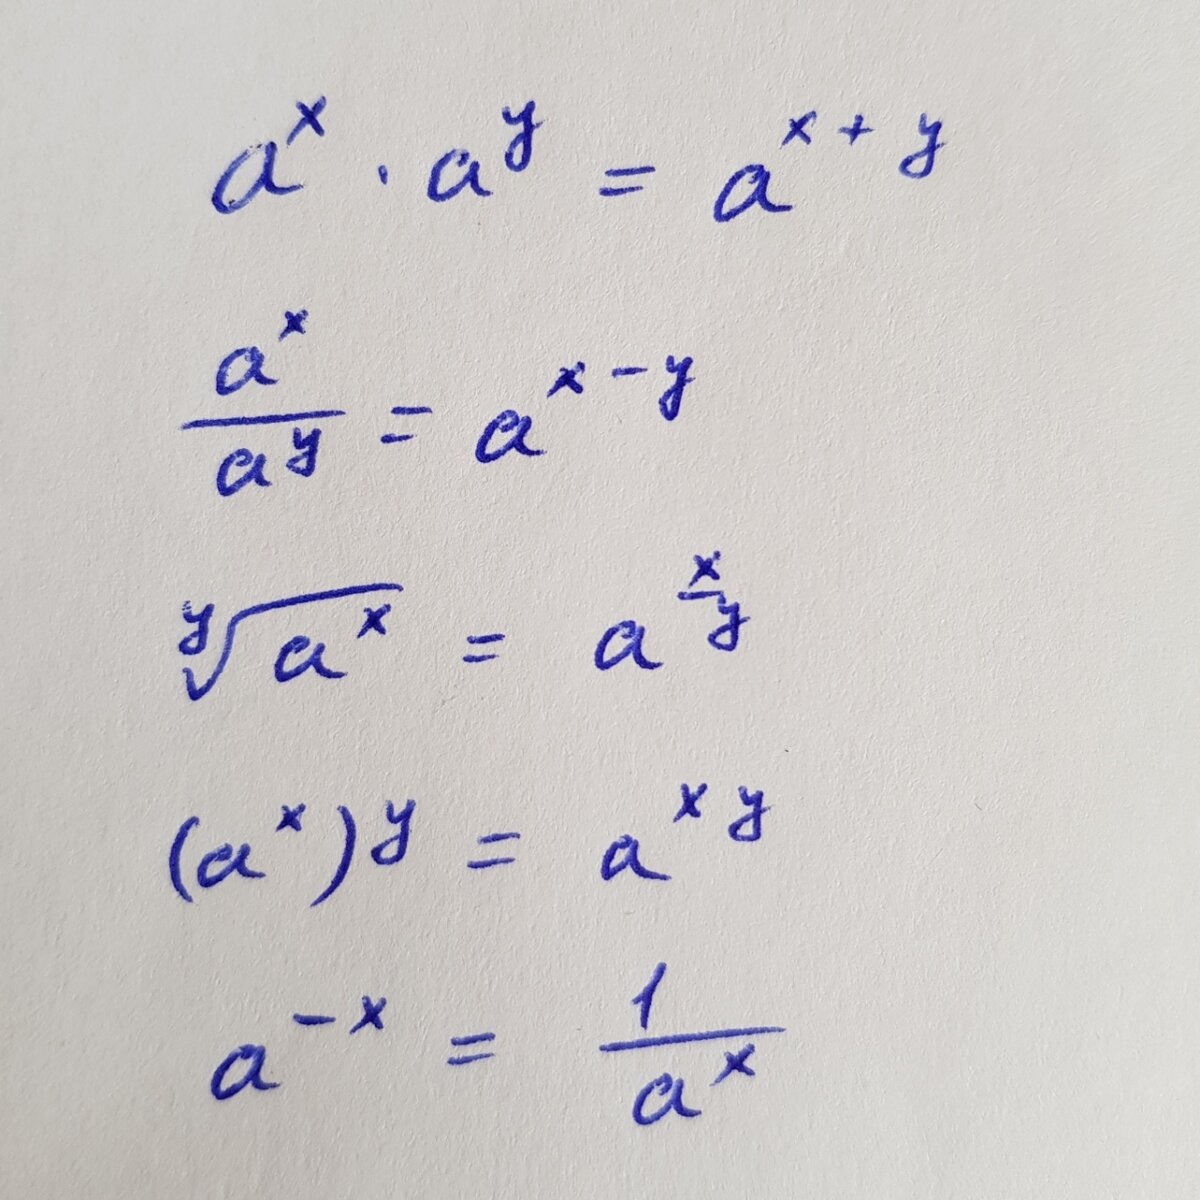 a^x · a^y = a^{x + y}
\frac{a^x}{a^y} = a^{x - y}
\sqrt[y]{a^x} = a^{\frac{x}{y}}
(a^x)^y = a^{x y}
a^{-x} = \frac{1}{a^x}